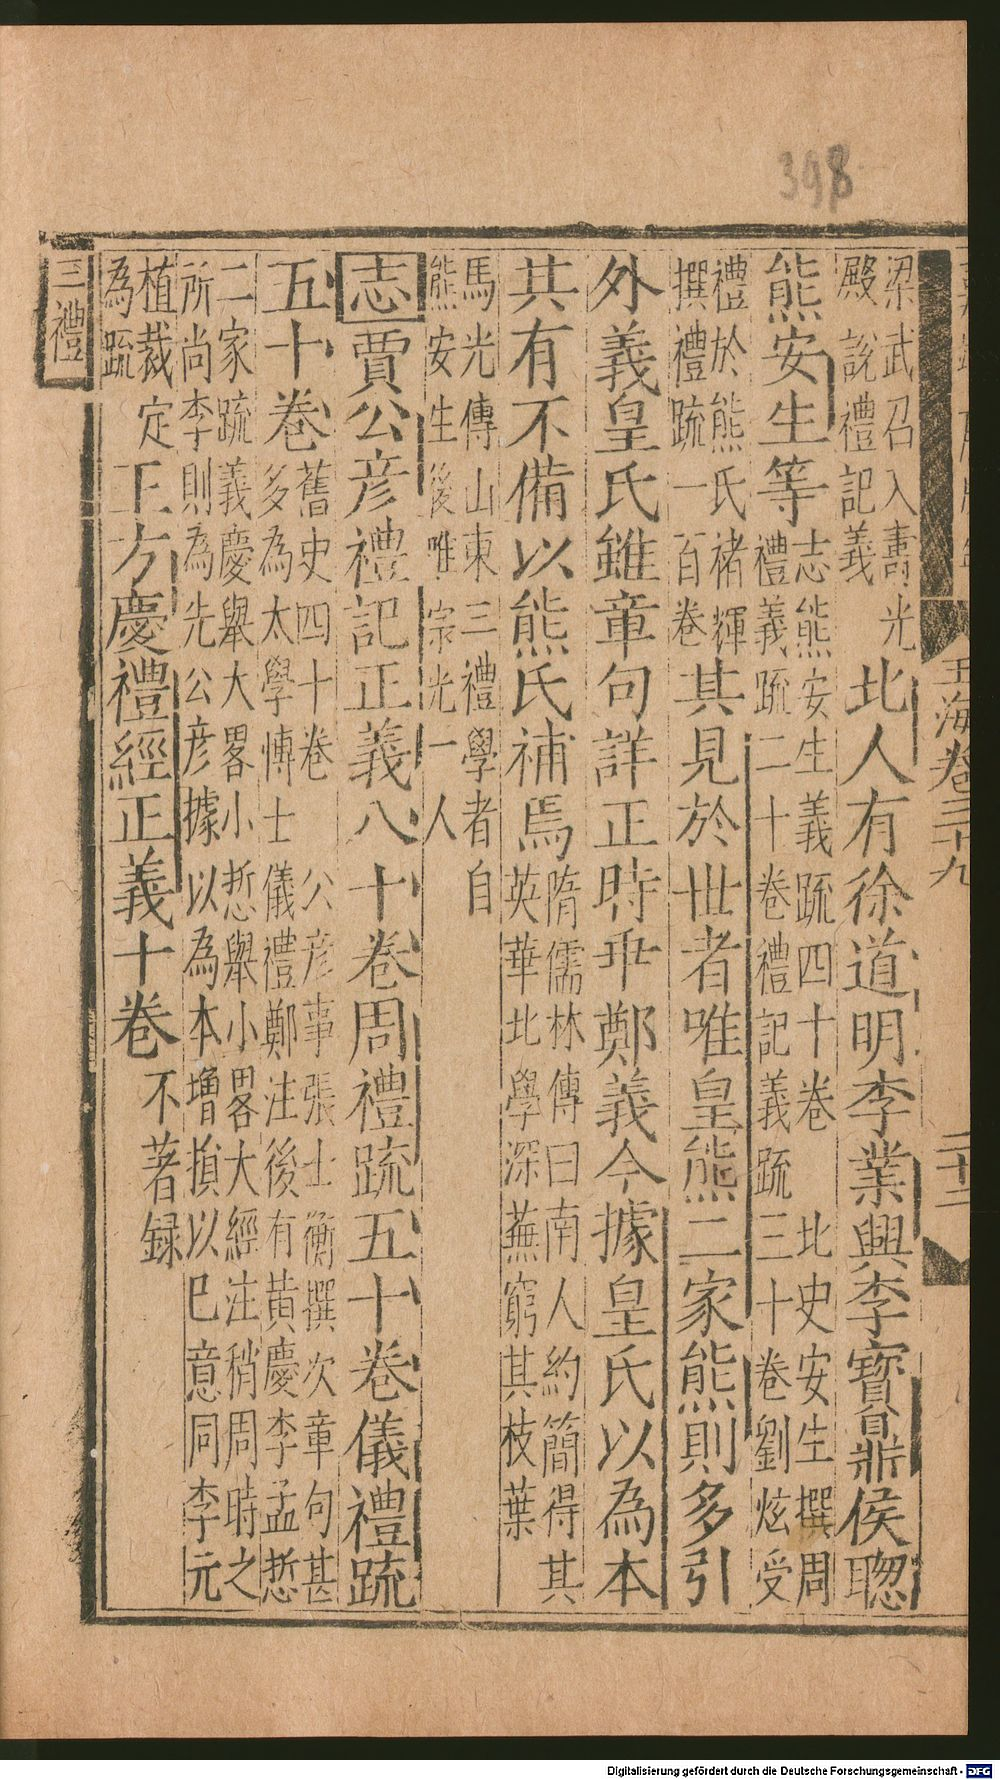 玉海卷三十九
二十二
梁武召入夀光殿說禮記義北人有徐道明李業興李寶鼎侯聦
熊安生等志熊安生義䟽四十卷 北史安生撰周禮義䟽二十卷禮記義䟽三十卷劉炫受
禮於熊氏褚輝撰禮䟽一百卷其見於丗者唯皇熊二家熊則多引
外義皇氏雖章句詳正時乖鄭義今據皇氏以為本
其有不備以熊氏補焉隋儒林傳曰南人約簡得其英華北學深蕪窮其枝葉
馬光傳山東三禮學者自熊安生後唯宗光一人
志賈公彦禮記正義八十卷周禮䟽五十卷儀禮䟽
五十卷舊史四十卷 公彦事張士衡撰次章句甚多為太學博士儀禮鄭注後有黄慶李孟悊
二家䟽義慶舉大畧小悊舉小畧大經注稍周時之所尚李則為先公彦據以為本增損以巳意同李元
植裁定為䟽王方慶禮經正義十卷不著録
三禮
398
Digitalisierung gefördert durch die Deutsche Forschungsgemeinschaft - DFG